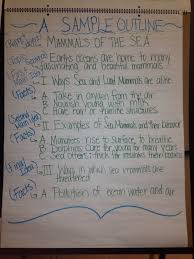 A SAMPLE OUTLINE
MAMMALS OF THE SEA
Earth's oceans are home to many
fascinating, and beautiful mammals.
I Ways Sea and Land Mammals are alike
(Facts) A. Take in oxygen from the air
B Nourish young with milk
C Have hair or hairlike structures
II. Examples of Sea Mammals and their Behavior
(Facts) A Manatees rise to surface, to breathe
B Dolphins Care for young for many years
C Sea Otters:
III Ways in which sea mammals are
threatened
(Facts) A Pollution of ocean water and air